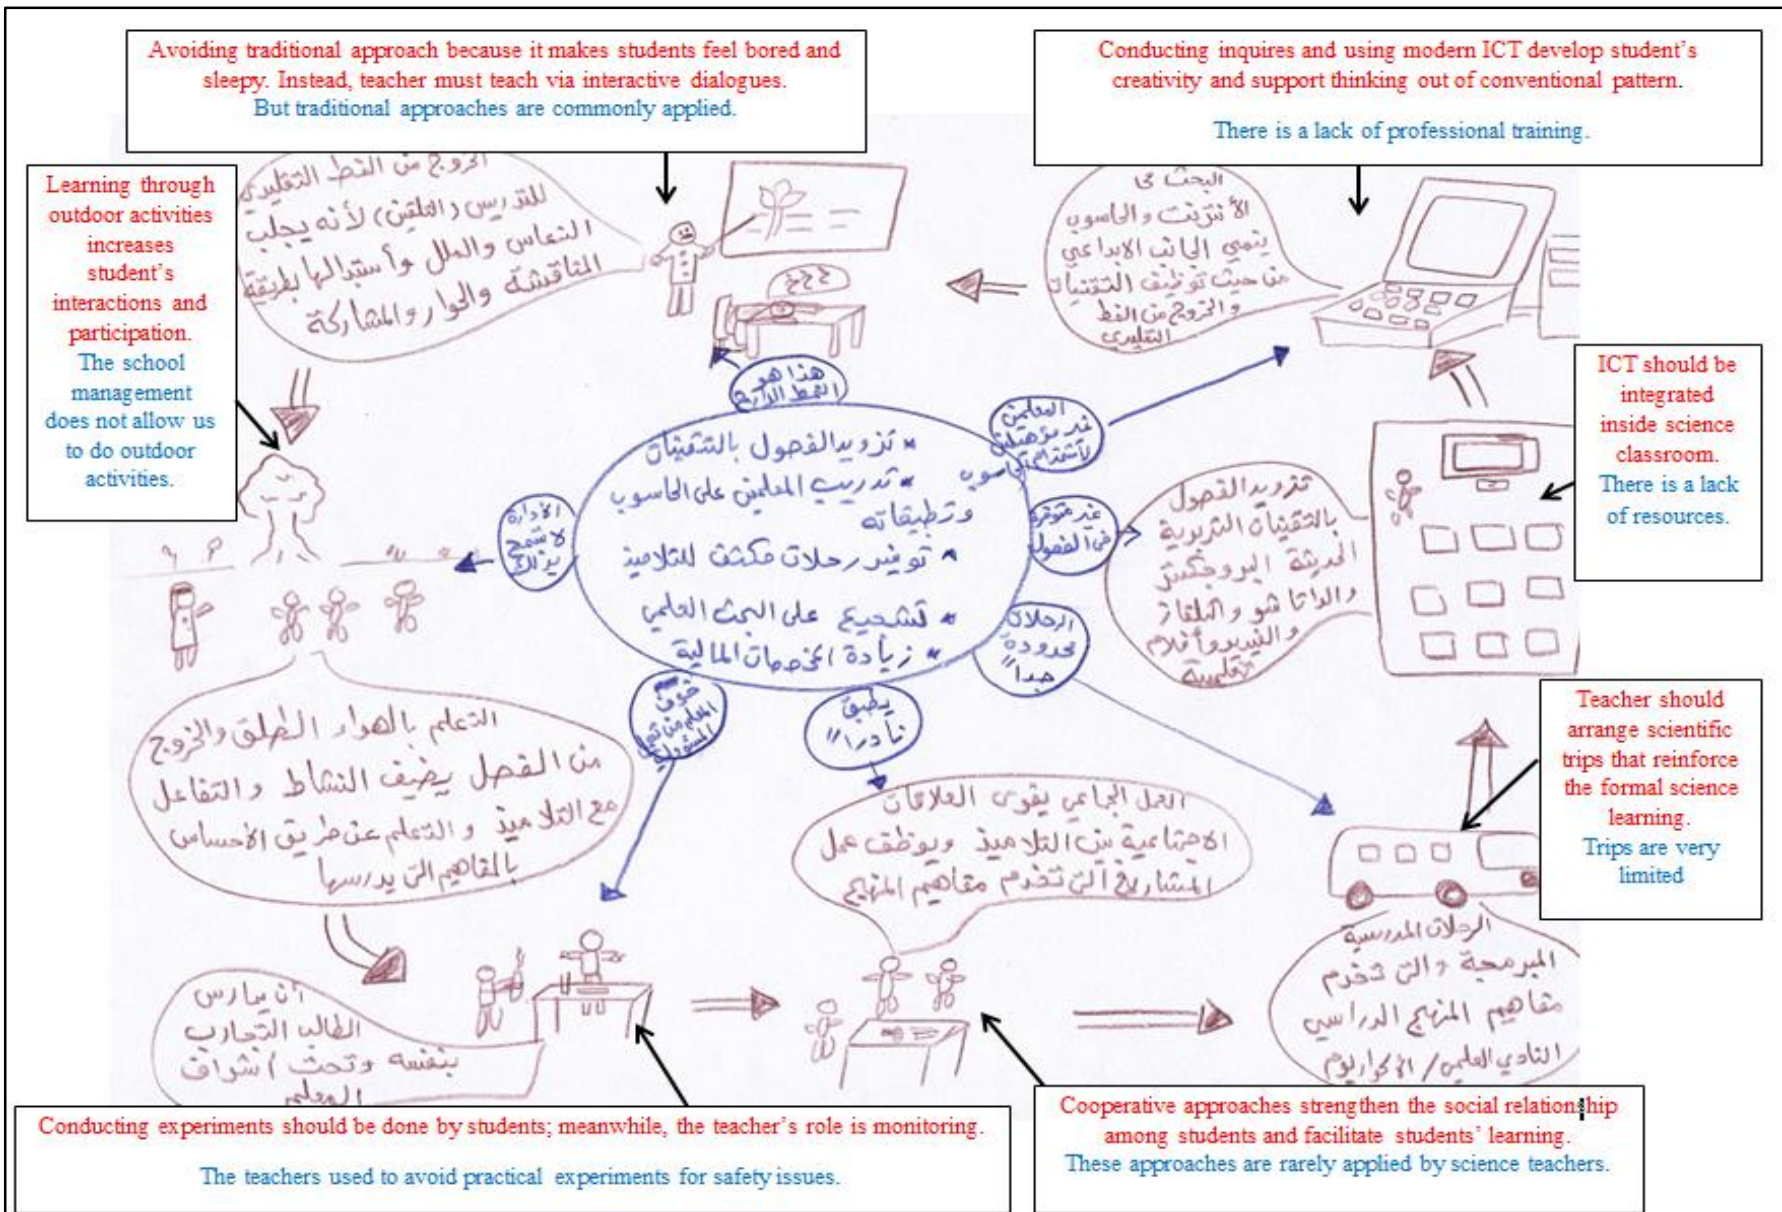 Avoiding traditional approach because it makes students feel bored and
sleepy. Instead, teacher must teach via interactive dialogues.
But traditional approaches are commonly applied.
Conducting inquires and using modern ICT develop student's
creativity and support thinking out of conventional pattern.
There is a lack of professional training.
Learning through
outdoor activities
increases
student's
interactions and
participation.
The school
management
does not allow us
to do outdoor
activities.
الخروج من النمط التقليدي
للتدريس (التلقين) لأنه يجلب
النعاس والملل وأستبدالها بطريقة
المناقشة والحوار والمشاركة
البحث في
الأنترنت والحاسوب
ينمي الجانب الابداعي
من حيث توظيف التقنيات
والخروج من النمط
التقليدي
ICT should be
integrated
inside science
classroom.
There is a lack
of resources.
هذا هو
النمط الدارج
المعلمين
غير مؤهلين
لأستخدام الحاسوب
* تزويد الفصول بالتقنيات
* تدريب المعلمين على الحاسوب
وتطبيقاته
* توفير رحلات مكثف للتلاميذ
* تشجيع على البحث العلمي
* زيادة المخصصات المالية
الأدارة
لا تسمح
بذلك
غير متوفرة
في الفصول
تزويد الفصول
بالتقنيات التربوية
الحديثة البروجكتر
والداتا شو والتلفاز
والفيديو وأفلام
تعليمية
الرحلات
محدودة
جداً
يطبق
نادراً
خوف
المعلم من
المسؤولية
Teacher should
arrange scientific
trips that reinforce
the formal science
learning.
Trips are very
limited
التعلم بالهواء الطلق والخروج
من الفصل يضيف النشاط والتفاعل
مع التلاميذ والتعلم عن طريق الأحساس
بالمفاهيم التي يدرسها
العمل الجماعي يقوى العلاقات
الاجتماعية بين التلاميذ ويوظف عمل
المشاريع التي تخدم مفاهيم المنهج
الرحلات المدرسية
المبرمجة والتي تخدم
مفاهيم المنهج الدراسي
النادي العلمي / الأكواريوم
أن يمارس
الطالب التجارب
بنفسه وتحت أشراف
المعلم
Conducting experiments should be done by students; meanwhile, the teacher's role is monitoring.
The teachers used to avoid practical experiments for safety issues.
Cooperative approaches strengthen the social relationship
among students and facilitate students' learning.
These approaches are rarely applied by science teachers.